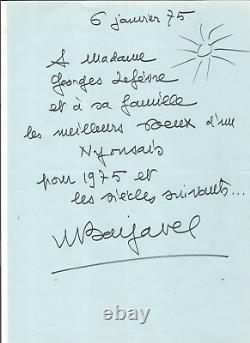 6 janvier 75
A Madame
Georges Lefèvre
et à sa famille
les meilleurs voeux d'un
Nyonsais
pour 1975 et
les siècles suivants...
Barjavel